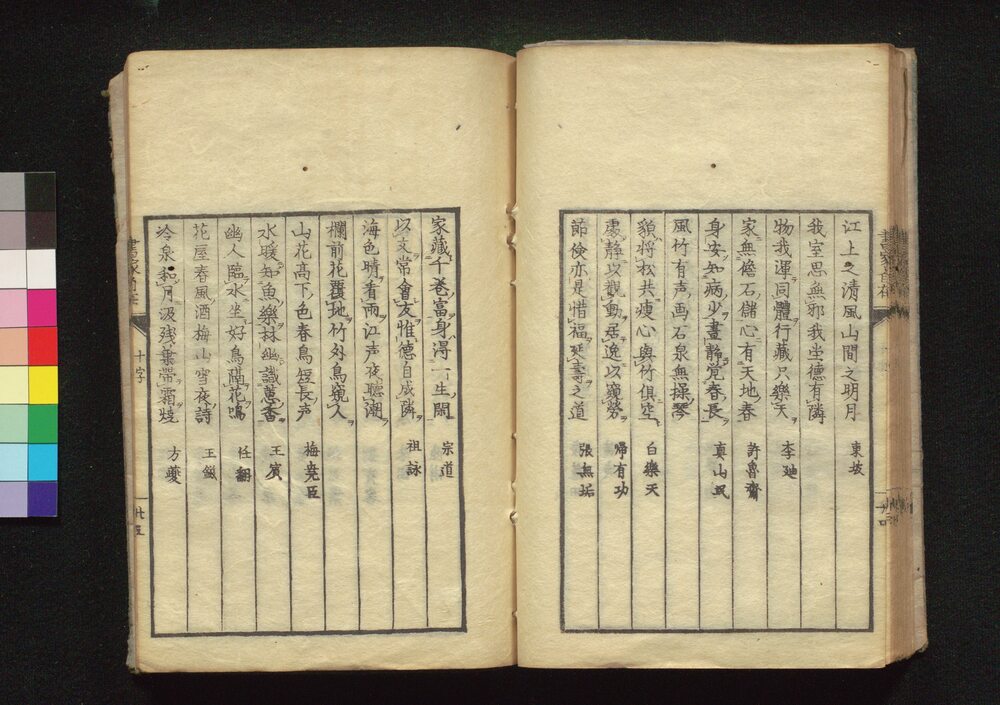 江上之清風山間之明月 東坡
我室思無邪我坐德有隣
物我渾同體行藏只樂天 李廸
家無儋石儲心有天地春 許魯齋
身安知病少晝靜覚春長 真山民
風竹有声画石泉無操琴
貌將松共瘦心與竹俱空 白樂天
處靜以觀動居逸以窺勞 歸有功
節儉亦是惜福延壽之道 張無垢
家藏千卷富身淂一生閑 宗道
以文常會友惟德自成隣 祖詠
海色晴看雨江声夜聽潮
欄前花覆地竹外鳥窺人
山花髙下色春鳥短長声 梅堯臣
水暖知魚樂林幽識蕙香 王賓
幽人臨水坐好鳥隔花鳴 任翻
花屋春風酒梅山雪夜詩 王鎡
冷泉和月汲残葉帯霜燒 方夔
十字
廿五